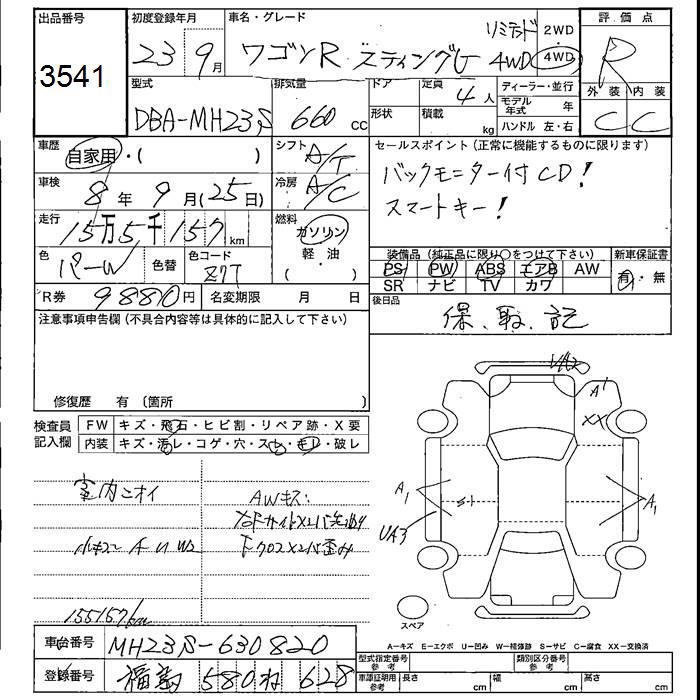 出品番号
3541
初度登録年月
23 9月
車名・グレード
リミテッド
ワゴンR スティングレー 4WD
2WD
・
4WD
評価点
R
外装 内装
C C
型式
DBA-MH23S
排気量
660 cc
ドア
形状
定員
4人
積載
kg
ディーラー・並行
モデル年式 年
ハンドル 左・右
車歴
自家用・( )
シフト
A/T
セールスポイント(正常に機能するものに限ります)
バックモニター付 CD!
スマートキー!
車検
8年9月(25日)
冷房
A/C
走行
15万5千157km
燃料
ガソリン
軽・油
( )
色
パーW
色替
色コード
Z7T
装備品(純正品に限り○をつけて下さい)
PS PW ABS エアB AW
SR ナビ TV カワ
新車保証書
有・無
R券 9880円
名変期限 月 日
後日品
保、取、記
注意事項申告欄(不具合内容等は具体的に記入して下さい)
修復歴 有 〔箇所 〕
検査員
記入欄
FW キズ・飛石・ヒビ割・リペア跡・X要
内装 キズ・汚レ・コゲ・穴・スレ・モレ・破レ
室内ニオイ
AWキズ
小キズ A U W2
155157km
VA2
A1
XX
A1
S1
UA3
A1
スペア
A-キズ E-エクボ U-凹み W-補修跡 S-サビ C-腐食 XX-交換済
車台番号 MH23S-630820
登録番号 福島 580 ね 628
型式指定番号
参考
類別区分番号
参考
車庫証明用
参考
長さ cm
幅 cm
高さ cm